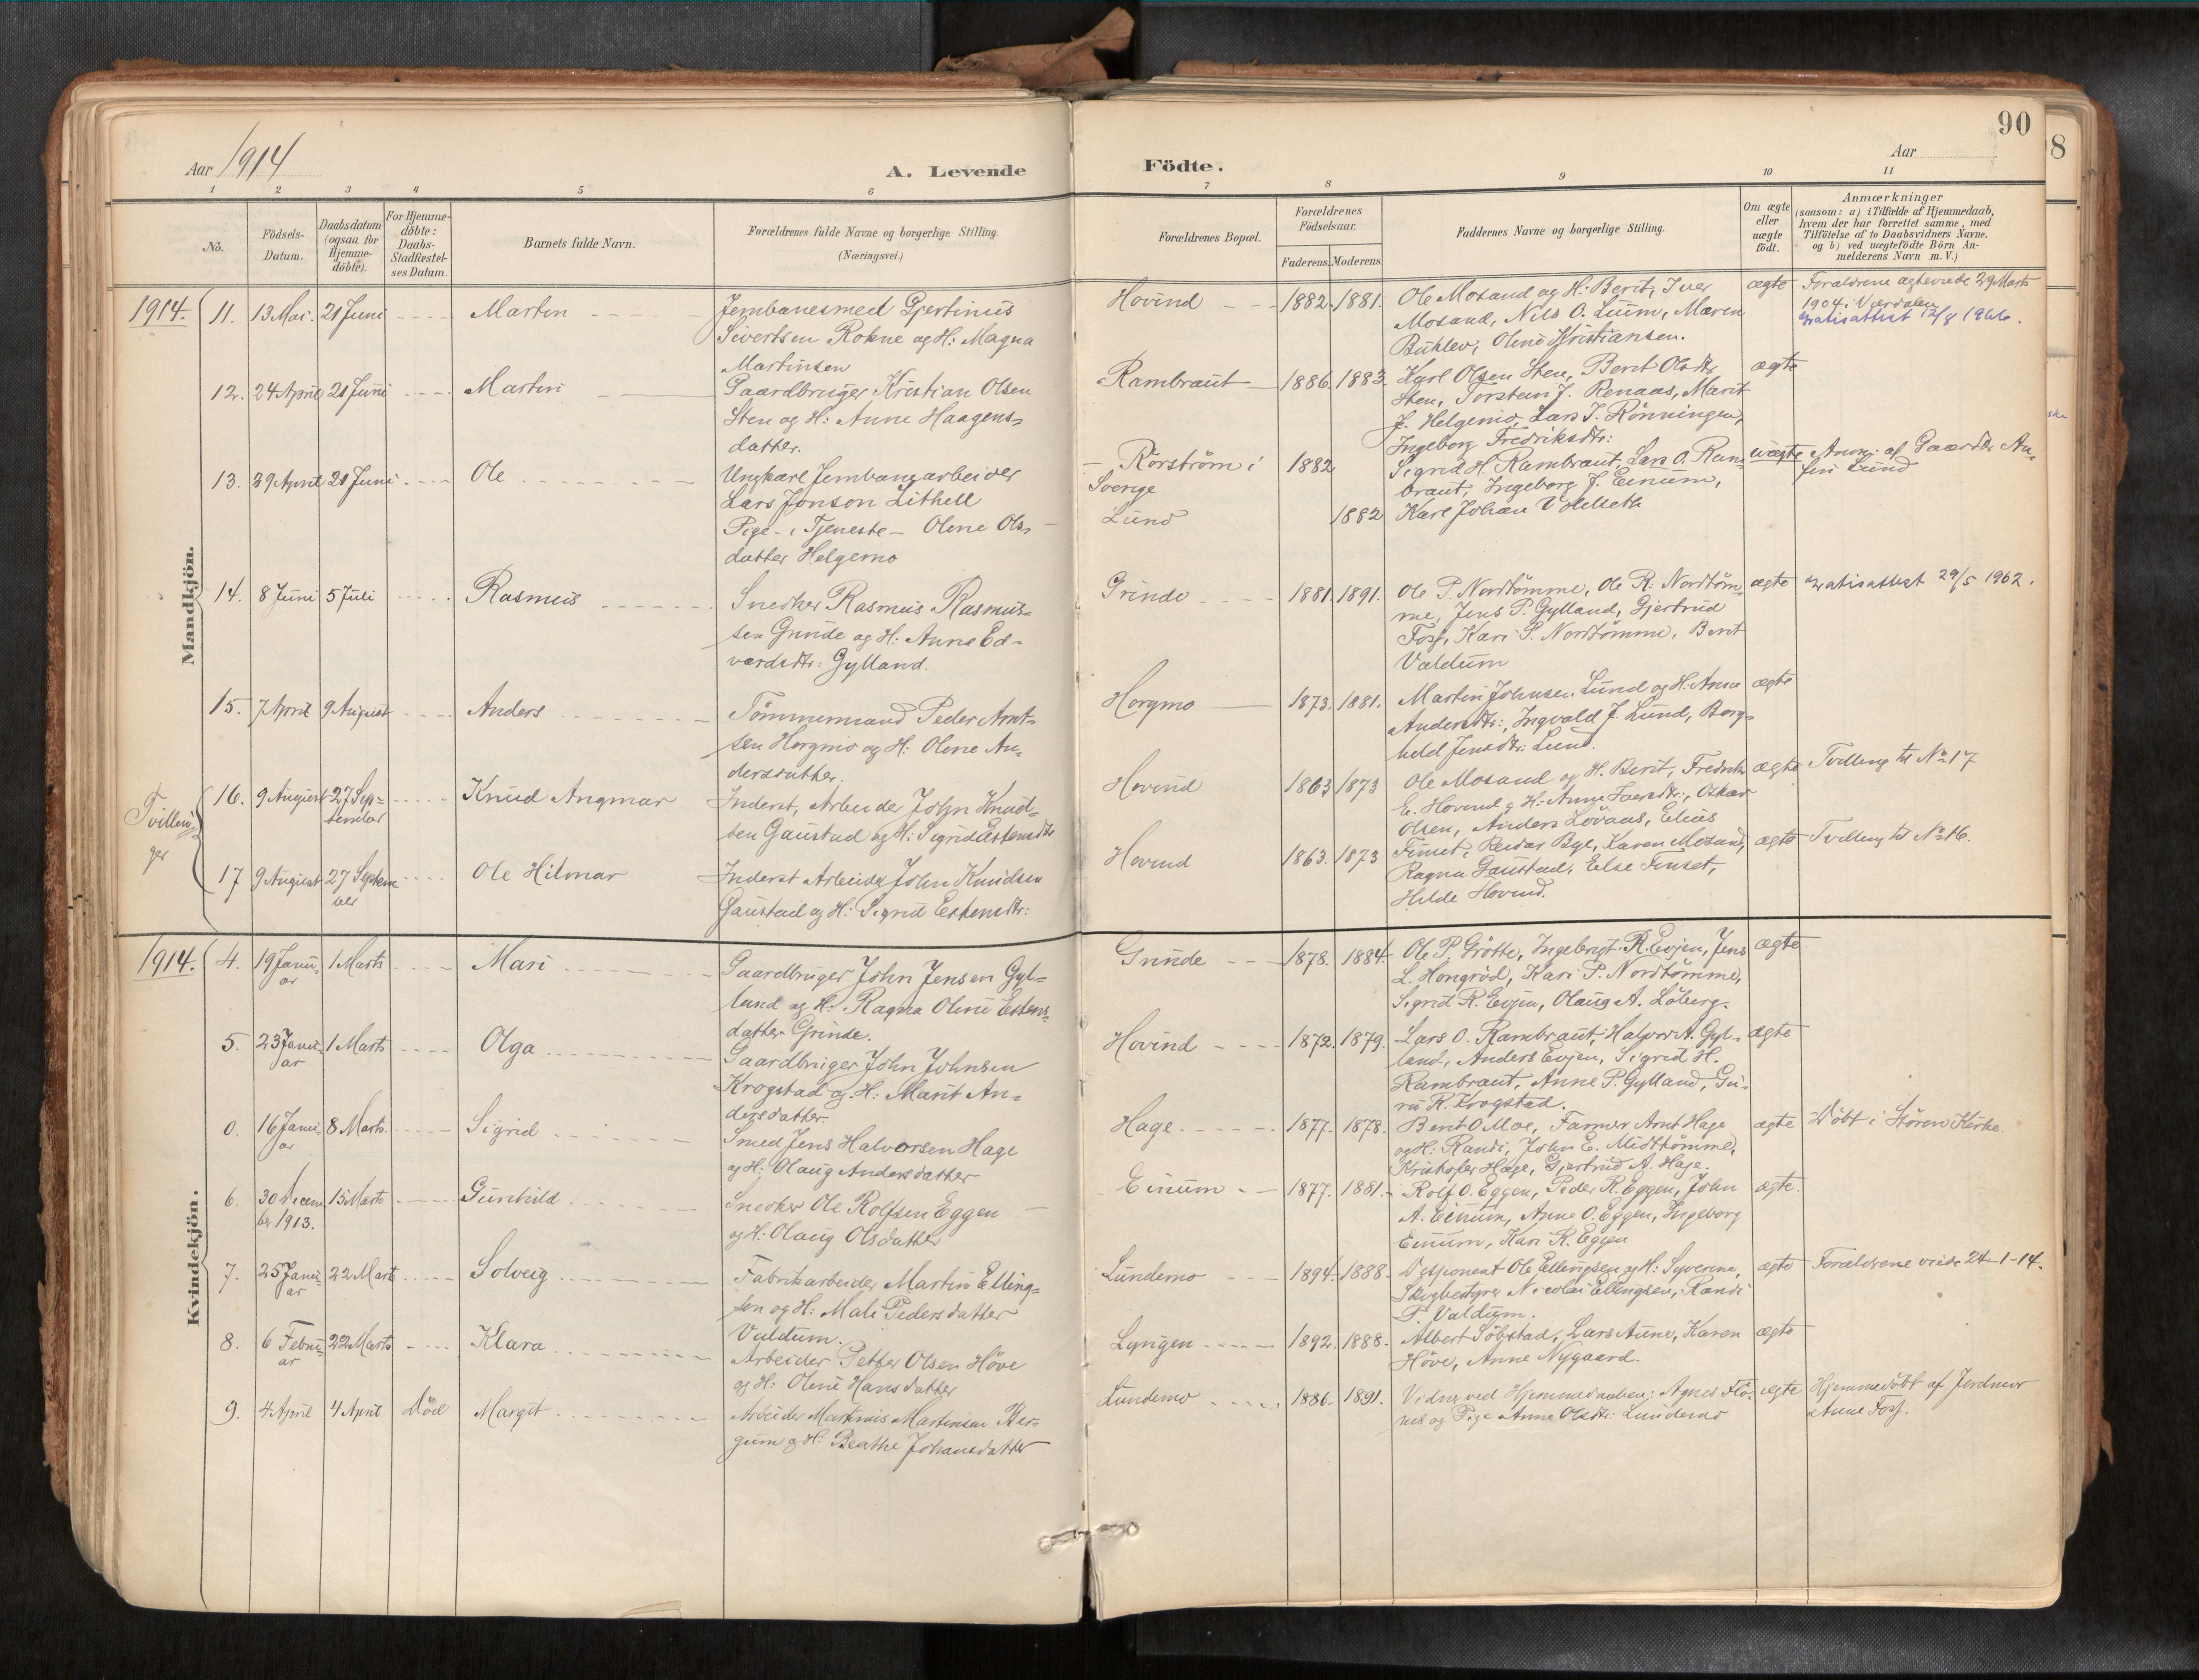 90
8
Aar 1914
A. Levende
Födte.
Aar
1 2 3 4 5 6 7 8 9 10 11
No.
Födsels-
Datum.
Daabsdatum
(ogsaa for
Hjemme-
döbte).
For Hjemme-
döbte:
Daabs-
Stadfæstel-
ses Datum.
Barnets fulde Navn.
Forældrenes fulde Navne og borgerlige Stilling.
(Næringsvei.)
Forældrenes Bopæl.
Forældrenes
Födselsaar.
Faderens. Moderens.
Faddernes Navne og borgerlige Stilling.
Om ægte
eller
uægte
födt.
Anmærkninger
(saasom: a) i Tilfælde af Hjemmedaab,
hvem der har forrettet samme, med
Tilföielse af to Daabsvidners Navne.
og b) ved uægtefödte Börn An-
melderens Navn m. V.)
Mandkjön.
1914. 11. 13 Mai. 21 Juni Martin
Jernbanesmed Gjertinius
Sivertsen Rokne og H: Magna
Martinsen
Hovind 1882. 1881.
Ole Mosand og H: Berit, Iver
Mosand, Nils O. Lium, Maren
Buhlev, Oline Kristiansen.
ægte
Forældrene ægteviede 29 Marts
1904 i Værdalen
gratisattest 12/8 1966.
12. 24 April 21 Juni Martin
Gaardbruger Kristian Olsen
Sten og H: Anne Haagens-
datter.
Rambraut 1886. 1883.
Karl Olsen Sten, Beret Olsdtr
Sten, Torstein J. Renaas, Marit
J. Helgemo, Lars J. Rönningen,
Ingeborg Fredriksdtr:
ægte
13. 29 April 21 Juni Ole
Ungkarl Jernbanearbeider
Lars Jonson Lithell
Pige i Tjeneste - Oline Ols-
datter Helgemo
Rörström i
Sverige
Lund
1882
1882
Sigrid H. Rambraut, Lars O. Ram-
braut, Ingeborg J. Einum,
Karl Johan Volleth
uægte
Anm: af Gaardbr. An-
fin Lund
14. 8 Juni 5 Juli Rasmus
Snedker Rasmus Rasmus-
sen Grinde og H: Anne Ed-
vardsdtr: Gylland.
Grinde 1881. 1891.
Ole P. Nordtömme, Ole R. Nordtöm-
me, Jens P. Gylland, Gjertrud
Foss, Kari P. Nordtömme, Berit
Valdum
ægte
gratisattest 29/5 1962.
15. 7 April 9 August Anders
Tömmermand Peder Arnt-
sen Horgmo og H: Oline An-
dersdatter.
Horgmo 1873. 1881.
Martin Johnsen Lund og H: Anne
Andersdtr:, Ingvald J. Lund, Borg-
hild Jensdtr: Lund.
ægte
Tvillin-
ger
16. 9 August 27 Sep-
tember
Knud Angmar
Inderst, Arbeider John Knud-
sen Gaustad og H: Sigrid Estensdtr
Hovind 1863 1873
Ole Mosand og H. Berit, Fredrik
E. Hovind og H: Anne Iversdtr:, Oskar
Olsen, Anders Lövaas, Elias
ægte
Tvilling til No 17
17 9 August 27 Septem
ber
Ole Hilmar
Inderst Arbeider John Knudsen
Gaustad og H: Sigrid Estensdtr:
Hovind 1863. 1873
Finset, Reidar Bye, Karen Mosand,
Ragna Gaustad, Else Finset,
Hilde Hovind.
ægte
Tvilling til No 16.
Kvindekjön.
1914. 4. 19 Janu-
ar
1 Marts Mari
Gaardbruger John Jensen Gyl-
land og H: Ragna Oline Estens-
datter Grinde.
Grinde 1878. 1884.
Ole P. Grötte, Ingebrigt R. Evjen, Jens
L. Hongröd, Kari P. Nordtömme,
Sigrid R. Evjen, Olaug A. Löberg.
ægte
5. 23 Janu-
ar
1 Marts Olga
Gaardbruger John Johnsen
Krogstad og H: Marit An-
dersdatter.
Hovind 1872. 1879.
Lars O. Rambraut, Halvor A. Gyl-
land, Anders Evjen, Sigrid H.
Rambraut, Anne P. Gylland, Gu-
ru R. Krogstad.
ægte
0. 16 Janu-
ar
8 Marts. Sigrid
Smed Jens Halvorsen Hage
og H: Olaug Andersdatter
Hage 1877. 1878.
Berit O Moe, Farmer Arnt Hage
og H: Randi, John E. Midttömme,
Kristofer Hage, Gjertrud A. Hage.
ægte
Döbt i Stören Kirke.
6. 30 Decem
ber 1913.
15 Marts Gunhild
Snedker Ole Rolfsen Eggen
og H: Olaug Olsdatter
Einum 1877. 1881.
Rolf O. Eggen, Peder R. Eggen, John
A. Einum, Anne O. Eggen, Ingeborg
Einum, Kari R. Eggen
ægte.
7. 25 Janu-
ar
22 Marts Solveig
Fabrikarbeider Martin Elling-
sen og H: Mali Pedersdatter
Valdum.
Lundemo 1894. 1888.
Disponent Ole Ellingsen og H: Syverine,
Skogbestyrer Nicolai Ellingsen, Randi
P. Valdum.
ægte
Forældrene viede 24-1-14.
8. 6 Febru-
ar
22 Marts Klara
Arbeider Petter Olsen Höve
og H: Oline Hansdatter
Lyngen 1892. 1888.
Albert Söbstad, Lars Aune, Karen
Höve, Anne Nygaard.
ægte
9. 4 April 4 April Död Margit
Arbeider Martinus Martinsen Ber-
gum og H: Beathe Johansdatter
Lundemo 1886. 1891.
Vidner ved Hjemmedaaben: Agnes Flö-
nes og Pige Anne Olsdtr: Lundemo
ægte
Hjemmedöbt af Jordmor
Anne Foss.